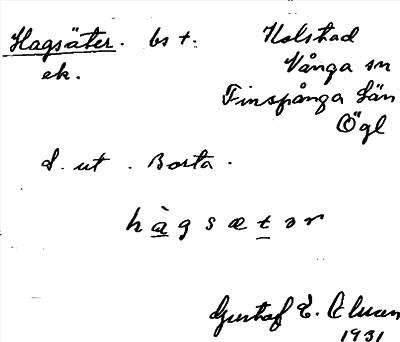 Hagsäter. bs t. Kolstad
ek. Vånga sn
Finspånga län
Ögl
d. ut. Borta.
hàgsætər
Gustaf E.
1931